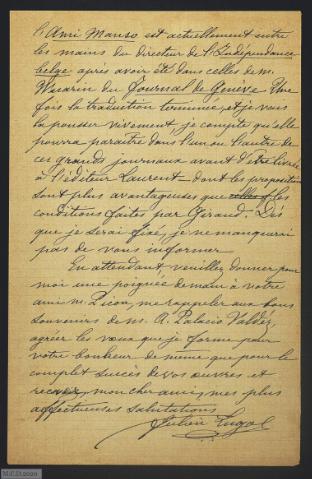 l'Ami Manso est actuellement entre
les mains du directeur de l'Indépendance
belge après avoir été dans celles de M.
du Journal de Genève. Une
fois la traduction terminée, et je vais
la pousser vivement, je compte qu'elle
pourra paraître dans l'un ou l'autre de
ces grands journaux avant d'être livrée
à l'éditeur Laurent dont les propositions
sont plus avantageuses que celles les
conditions faites par Giraud. Dès
que je serai fixé, je ne manquerai
pas de vous informer.
En attendant, veuillez donner pour
moi une poignée de main à votre
ami M. me rappeler aux bons
souvenirs de M. A. Palacio Valdés,
agréer les vœux que je forme pour
votre bonheur de même que pour le
complet succès de vos œuvres et
recevoir, mon cher ami, mes plus
affectueuses salutations
Julien Lugol